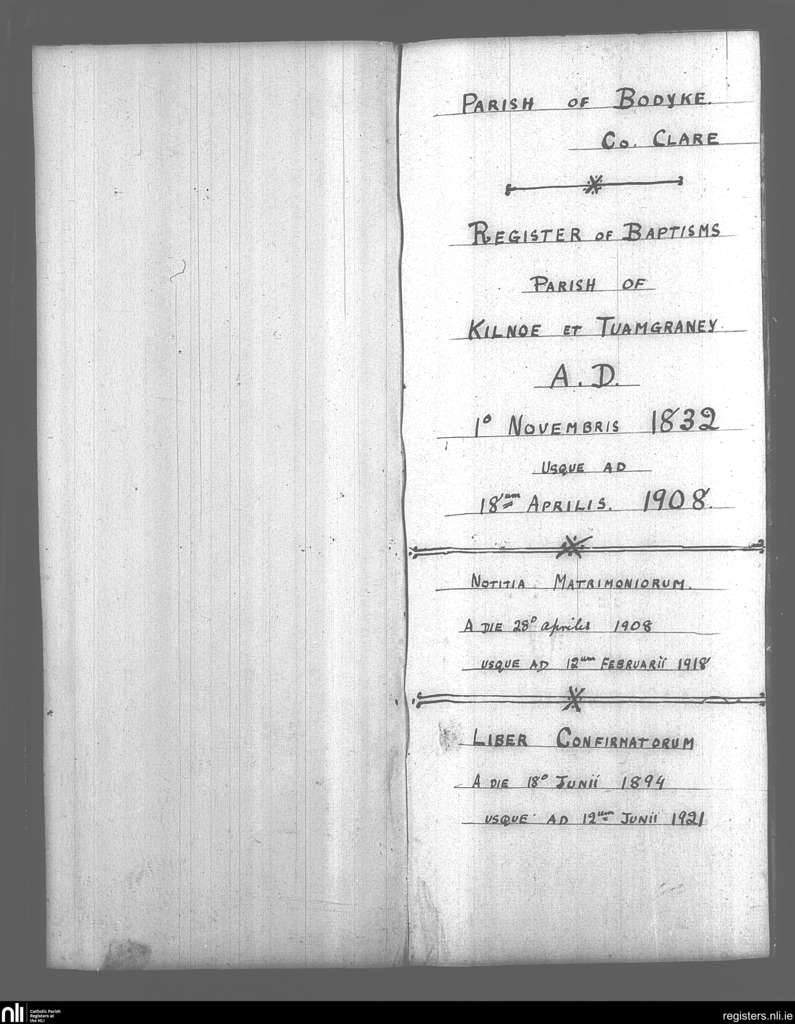 PARISH OF BODYKE.
CO. CLARE
REGISTER OF BAPTISMS
PARISH OF
KILNOE ET TUAMGRANEY
A.D.
1º NOVEMBRIS 1832
USQUE AD
18um APRILIS. 1908.
NOTITIA MATRIMONIORUM.
A DIE 28º aprilis 1908
USQUE AD 12um FEBRUARII 1918
LIBER CONFIRMATORUM
A DIE 18º JUNII 1894
USQUE AD 12um JUNII 1921
nli Catholic Parish
Registers at
the NLI
registers.nli.ie